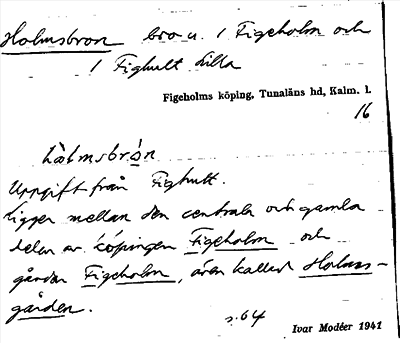 Holmsbron bro u. 1 Figeholm och
1 Fighult Lilla
Figeholms köping, Tunaläns hd, Kalm. l.
16
hàlmsbrón
Uppgift från Fighult.
Ligger mellan den centrala och gamla
delen av köpingen Figeholm och
gården Figeholm, även kallad Holms-
gården.
s. 64
Ivar Modéer 1941